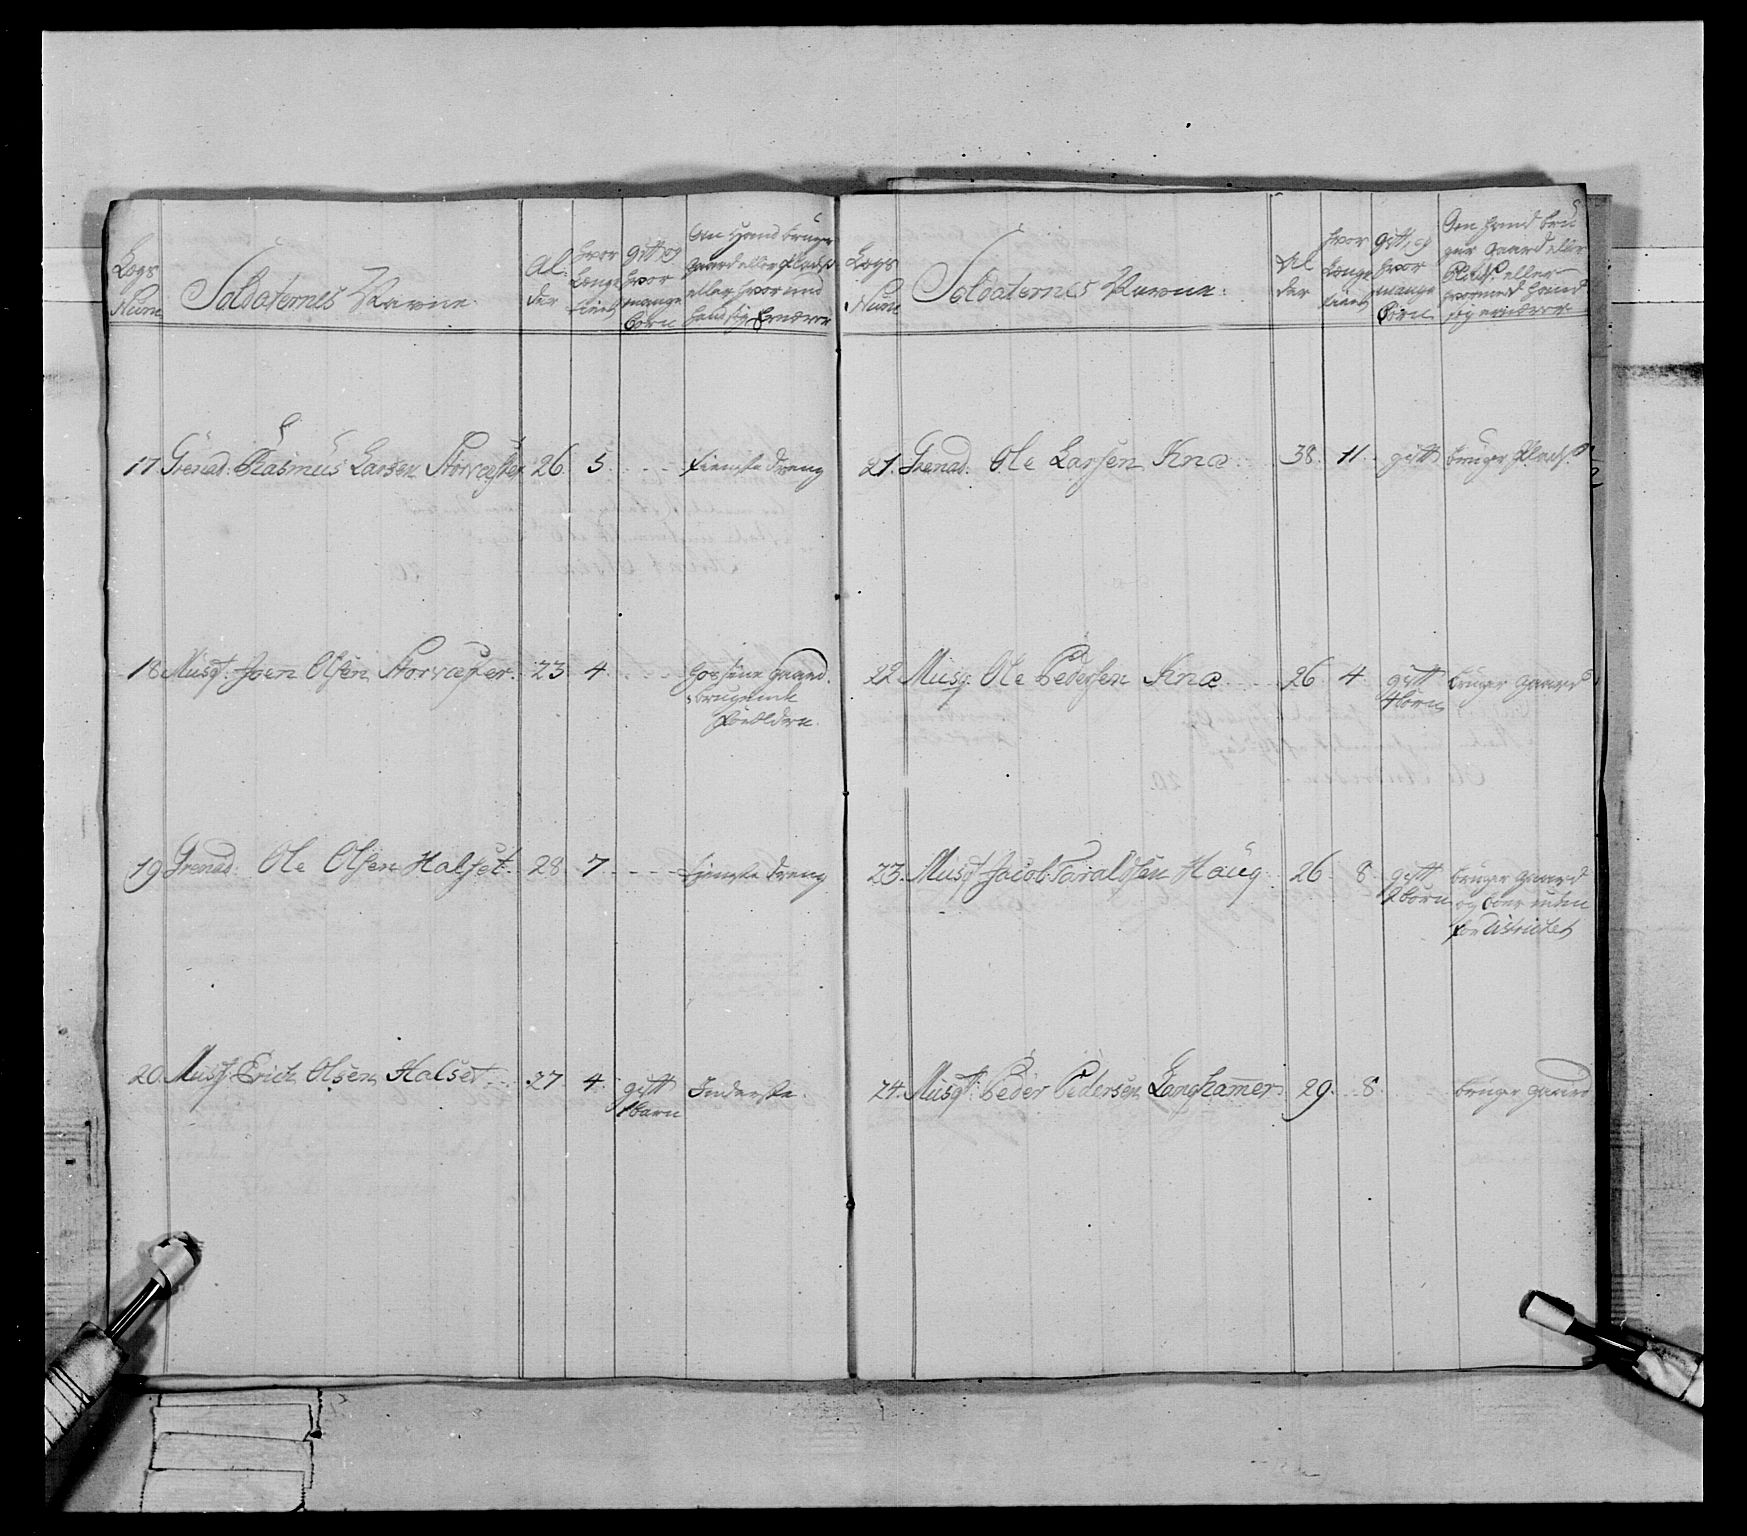 Legs Num
Soldaternes Navne
Al der
hvor Længe tient
gift og hvor mange børn
Om Hand bruger Gaard eller Pladtz eller hvor med hand sig Ernærer
17 Grenad: Rasmus Larsen Storvæster 26 5 - - - tieneste dreng
18 Musqt: Joen Olsen Storvæster 23 4 - - - hos sine gaard brugende Forældern
19 Grenad: Ole Olsen Halset 28 7 - - - tieneste dreng
20 Musq: Erich Olsen Halset 27 4 gift 1 barn Inderste
Legs Num
Soldaternes Navne
Al der
hvor Længe tient
gift, og hvor mange børn
Om hand bruger Gaard eller Plads eller hvormed hand sig ernærer
21 Grenad: Ole Larsen Knæ 38 11 gift bruger Plads
22 Musq: Ole Pedersen Knæ 26 4 gift 4 børn bruger gaard
23 Musqt Jacob Taraldsen Haug 26 8 gift 2 børn bruger gaard og boer uden for districtet
24 Musqt: Peder Pedersen Langhammer 29 8 bruger gaard